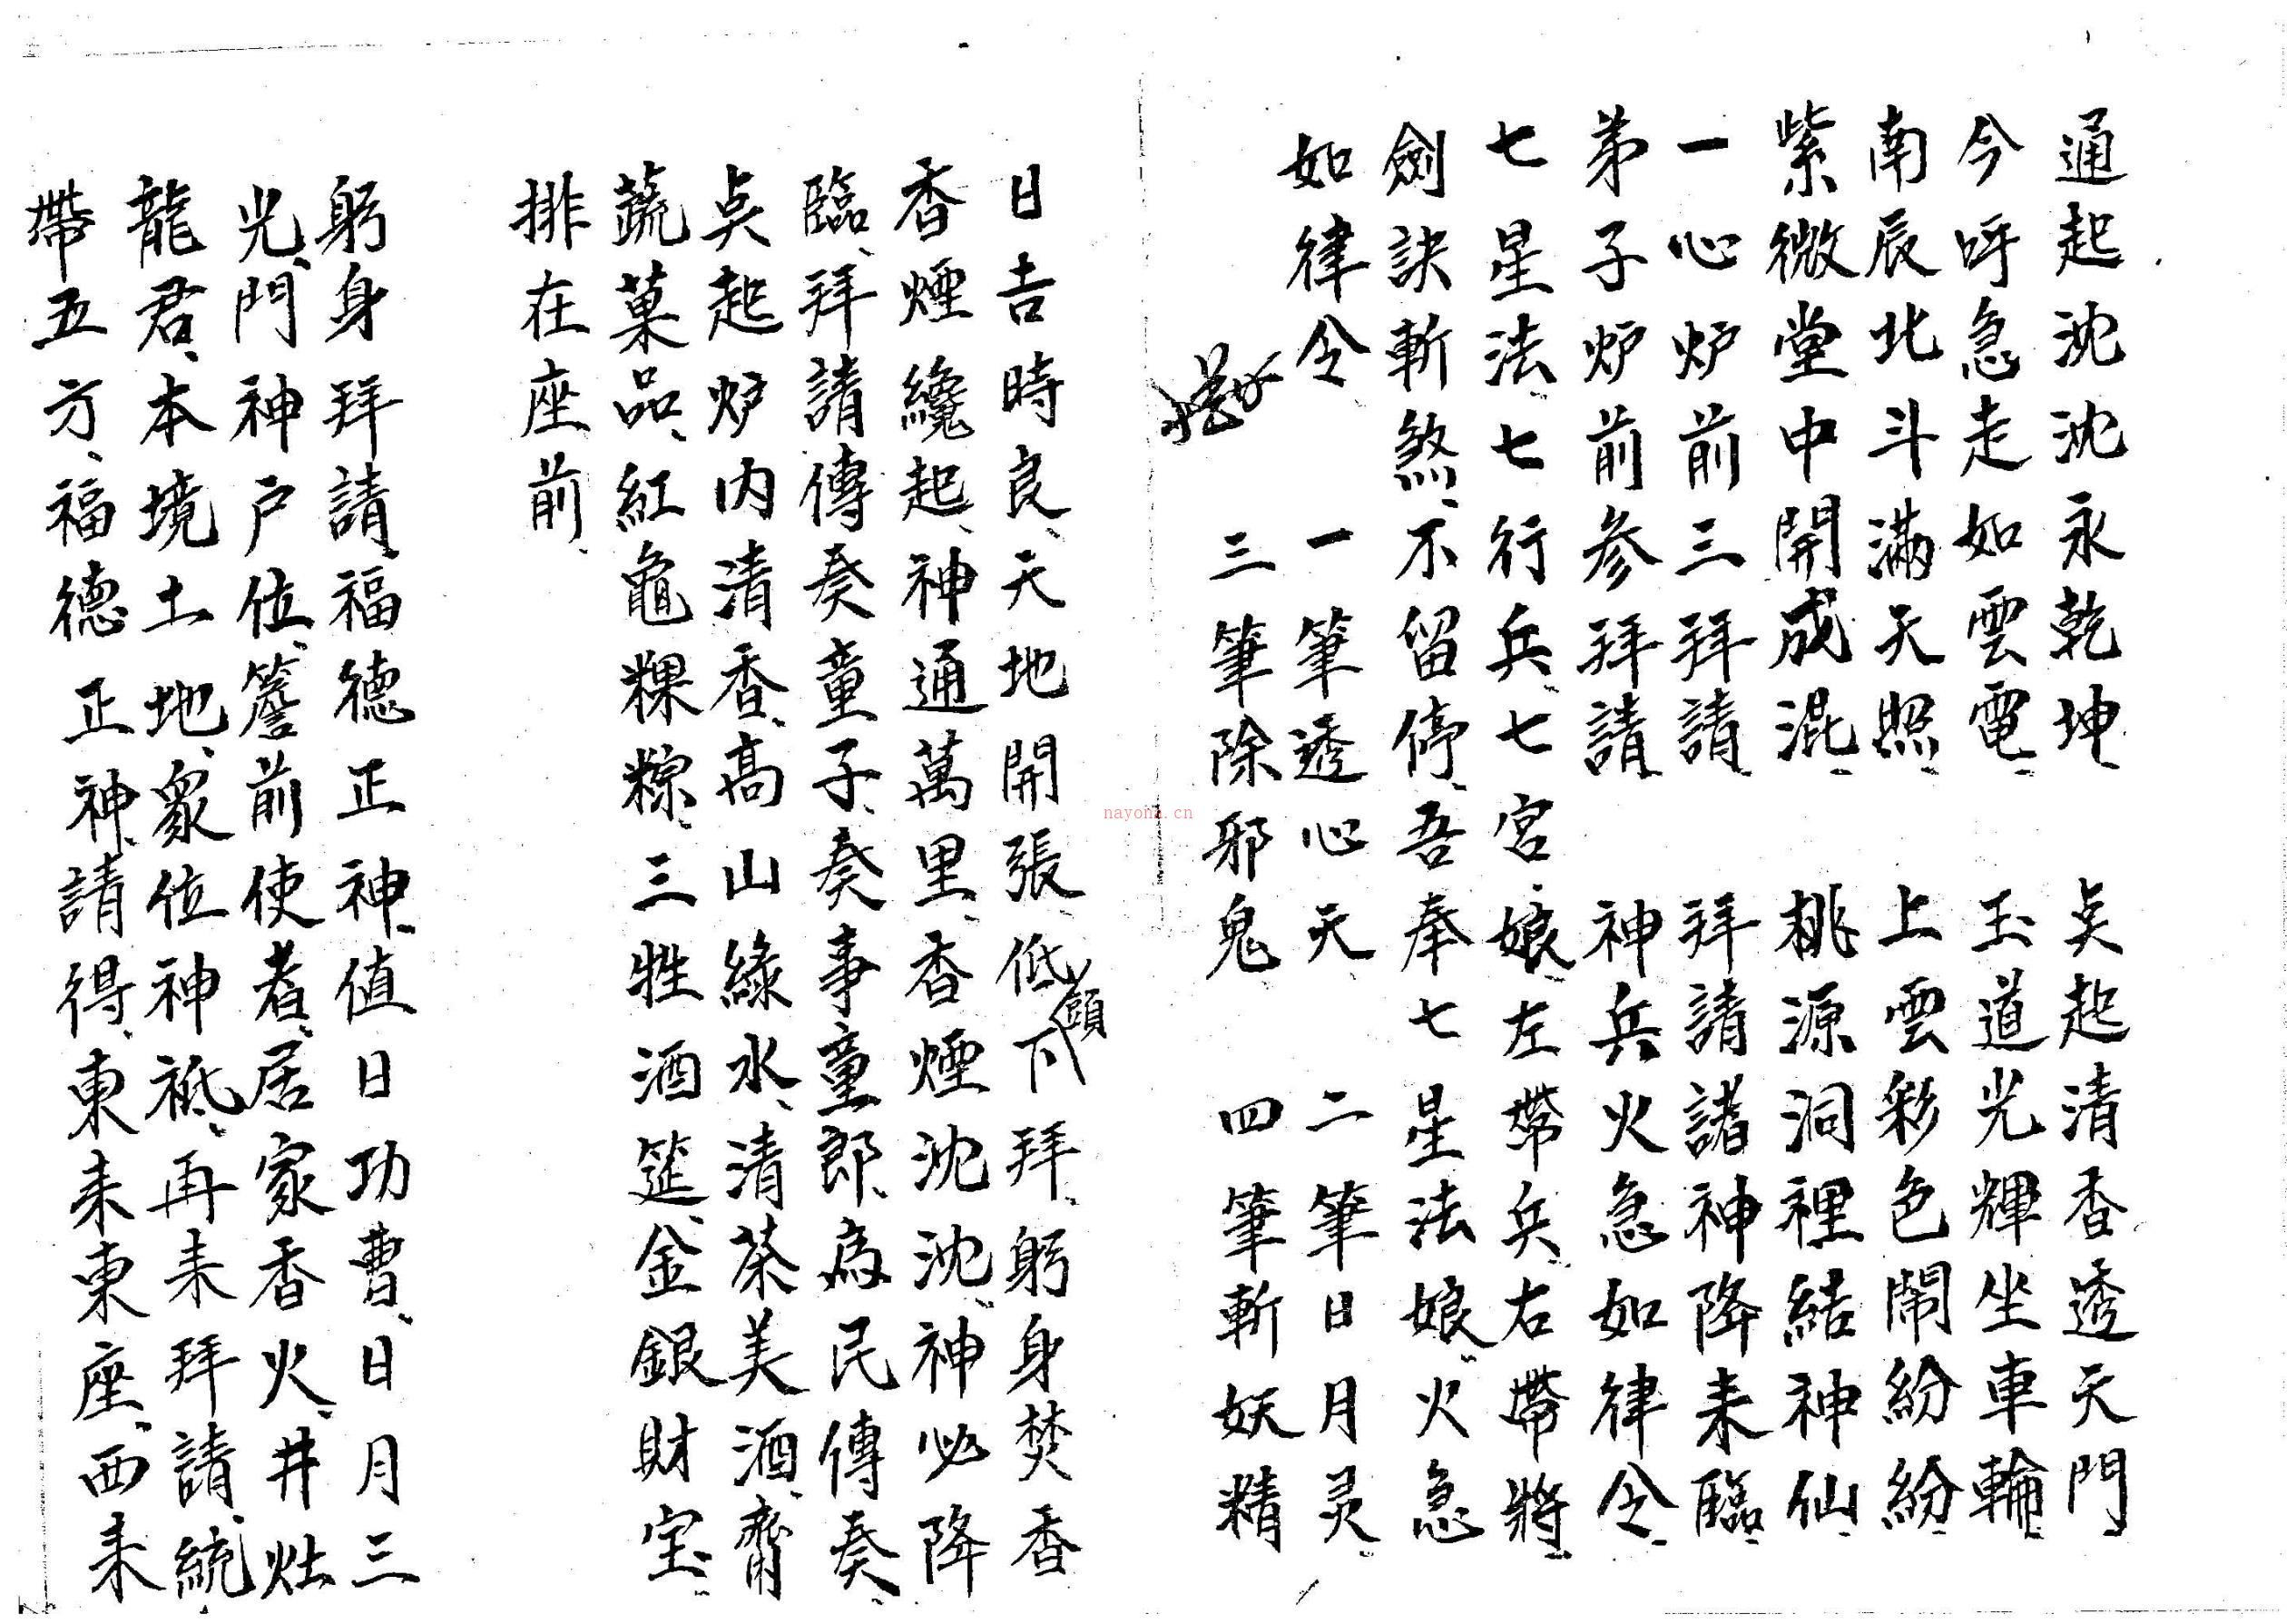 通起沈沈永乾坤、　炗起清香透天門
今呼急走如雲電、　玉道光輝坐車輪、
南辰北斗滿天照、　上雲彩色鬧紛紛、
紫微堂中開成混、　桃源洞裡結神仙、
一心炉前三拜請、　拜請諸神降来臨、
弟子炉前参拜請、　神兵火急如律令、
七星法、七七行兵、七七宮娘、左帶兵、右帶將、
劍訣斬煞、不留停、吾奉七星法娘、火急
如律令　一筆透心天　二筆日月灵、
三筆除邪鬼　四筆斬妖精
日吉時良、天地開張、低頭下拜、躬身焚香
香煙纔起、神通萬里、香煙沈沈、神必降
臨、拜請傳奏童子、奏事童郎、為民傳奏、
炗起炉内清香、高山綠水、清茶美酒、齊
蔬菓品、紅龜粿粽、三牲酒筵、金銀財宝、
排在座前、
躬身拜請、福德正神、值日功曹、日月三
光、門神户位、簷前使者、居家香火、井灶
龍君、本境土地、衆位神祇、再来拜請、統
帶五方、福德正神、請得、東来東座、西来
nayona.cn